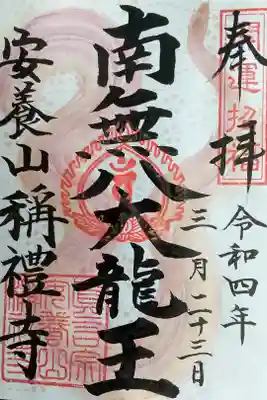 奉拝
令和四年
三月二十三日
開運招福
南無八大龍王
安養山稱禮寺